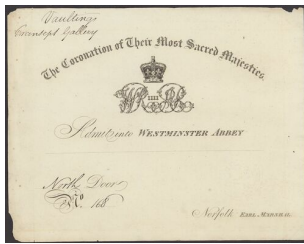 Vaultings
Gallery
The Coronation of Their Most Sacred Majesties.
Admit into WESTMINSTER ABBEY
North Door
No. 168
Norfolk EARL MARSHAL